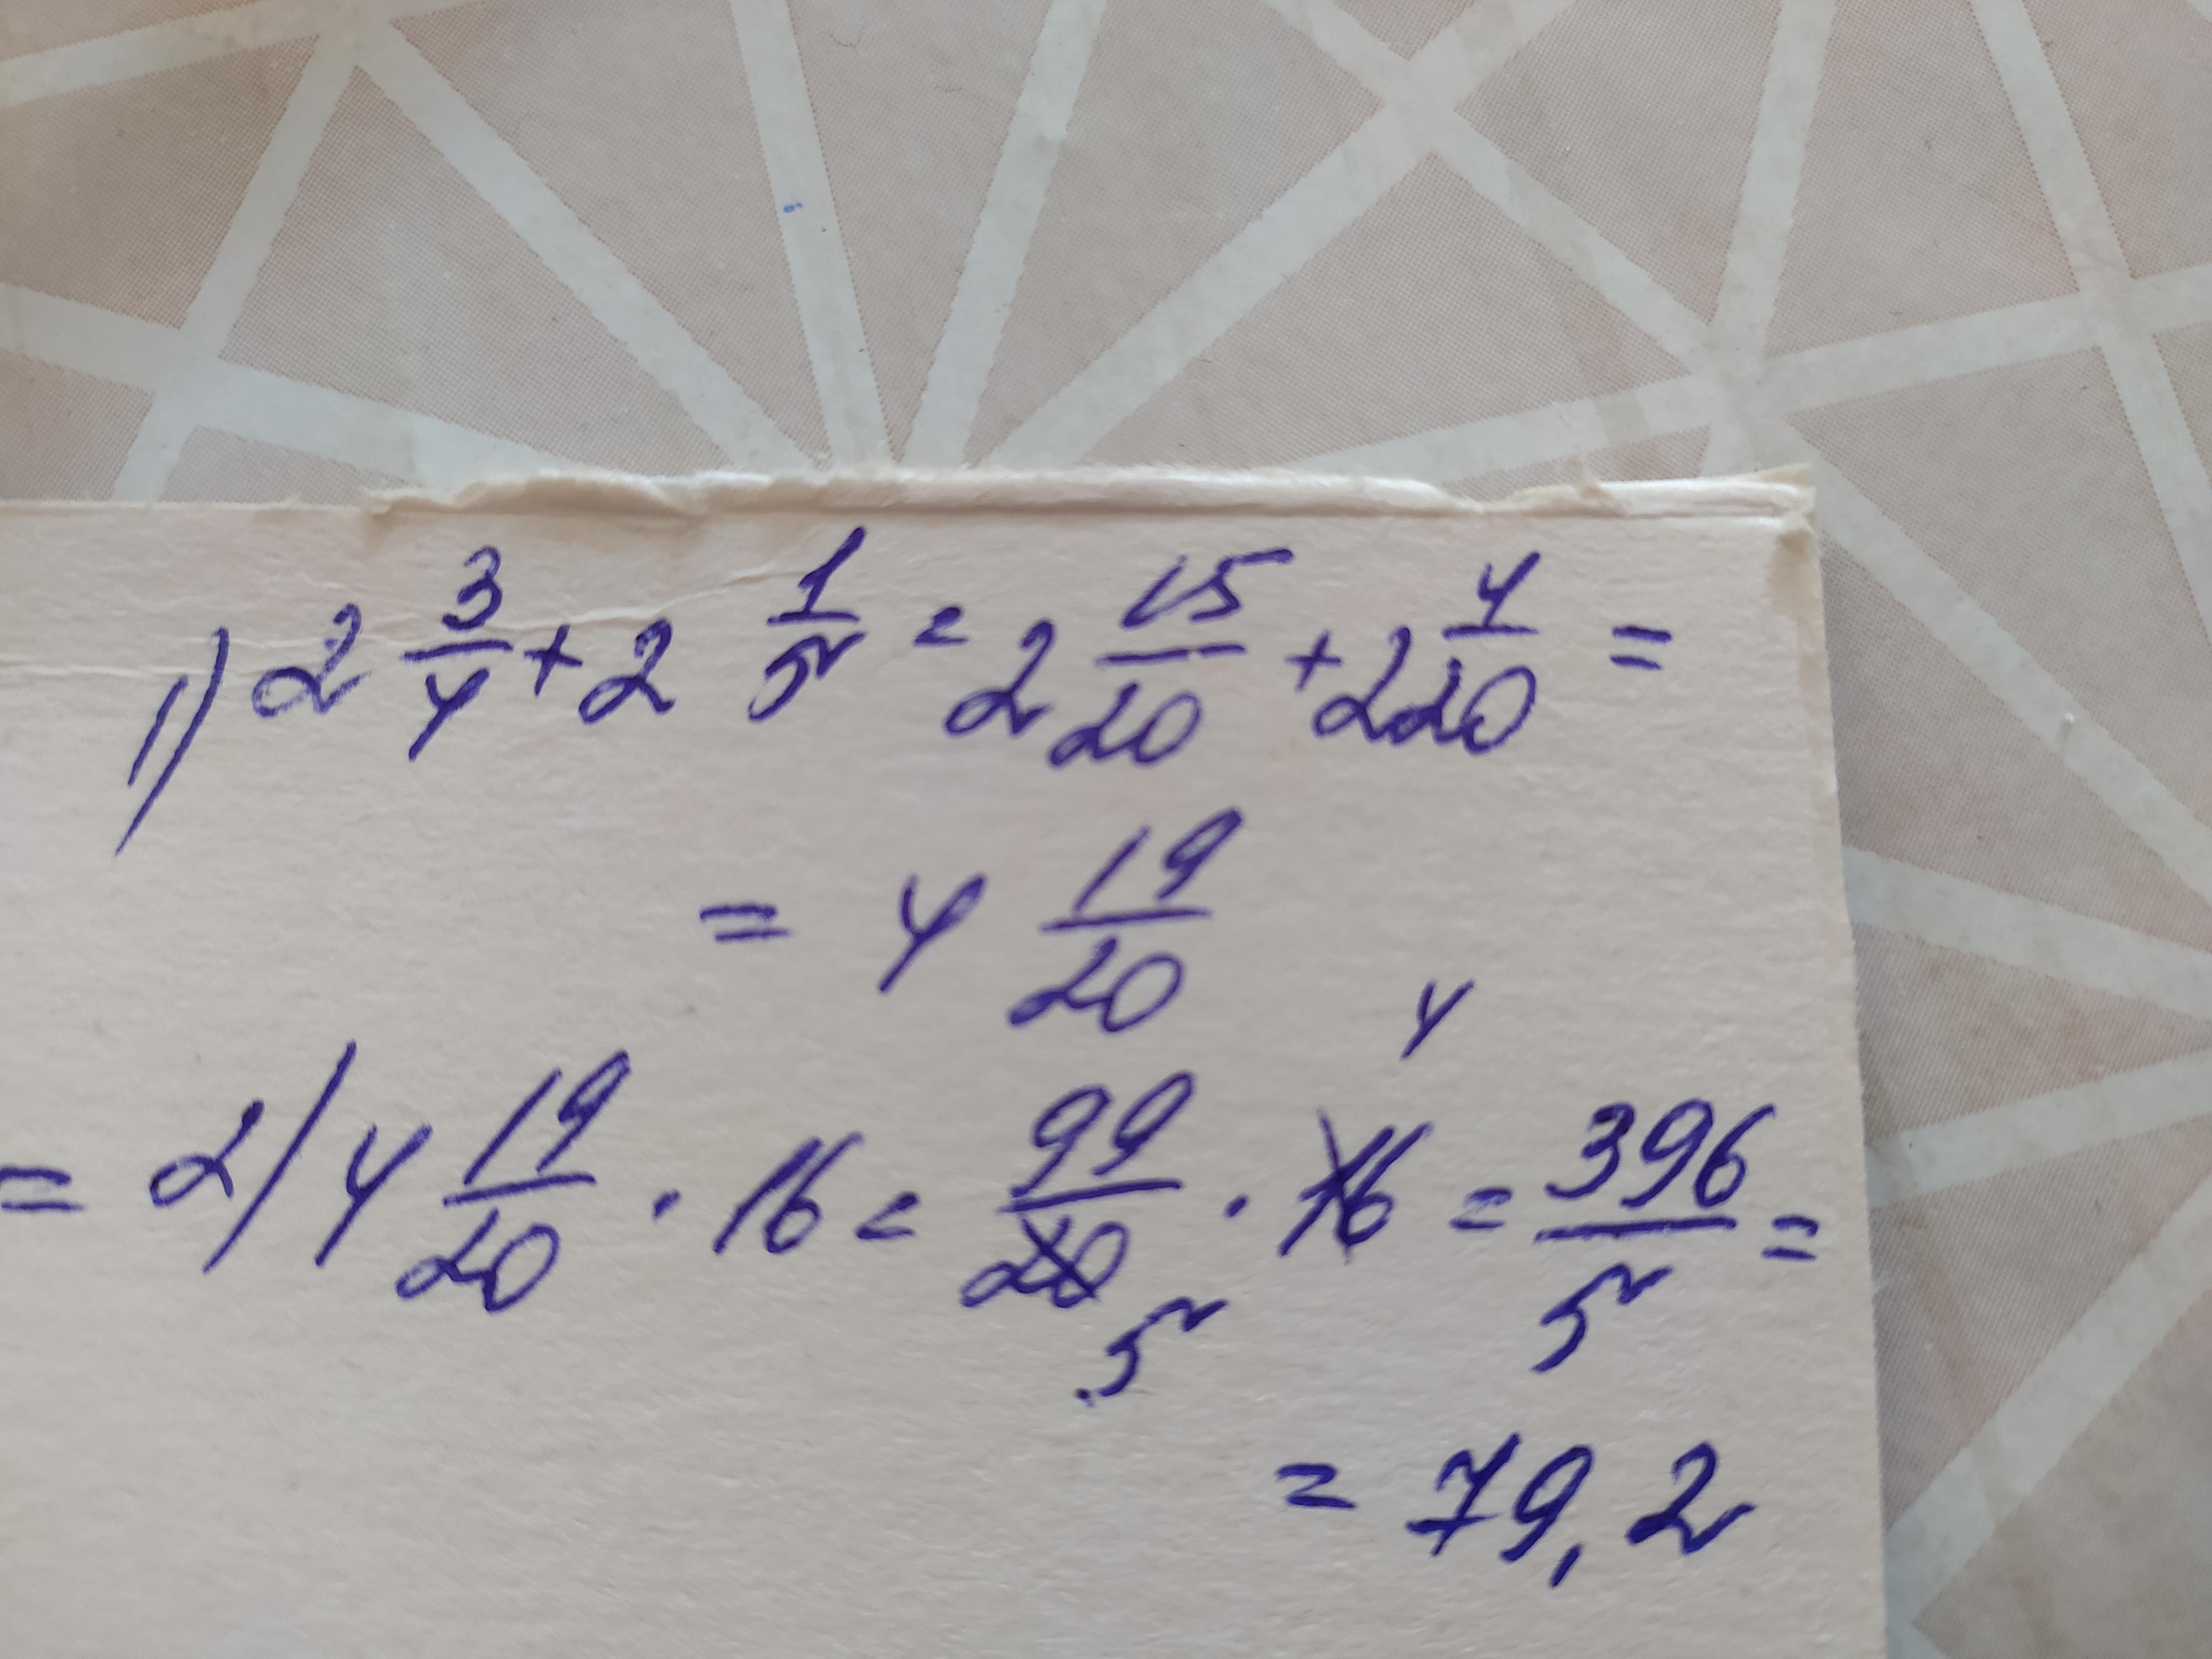 1) 2 3/4 + 2 1/5 = 2 15/20 + 2 4/20 =
= 4 19/20
= 2) 4 19/20 · 16 = 99/20 · 16 = 396/5 =
4
5
= 79,2